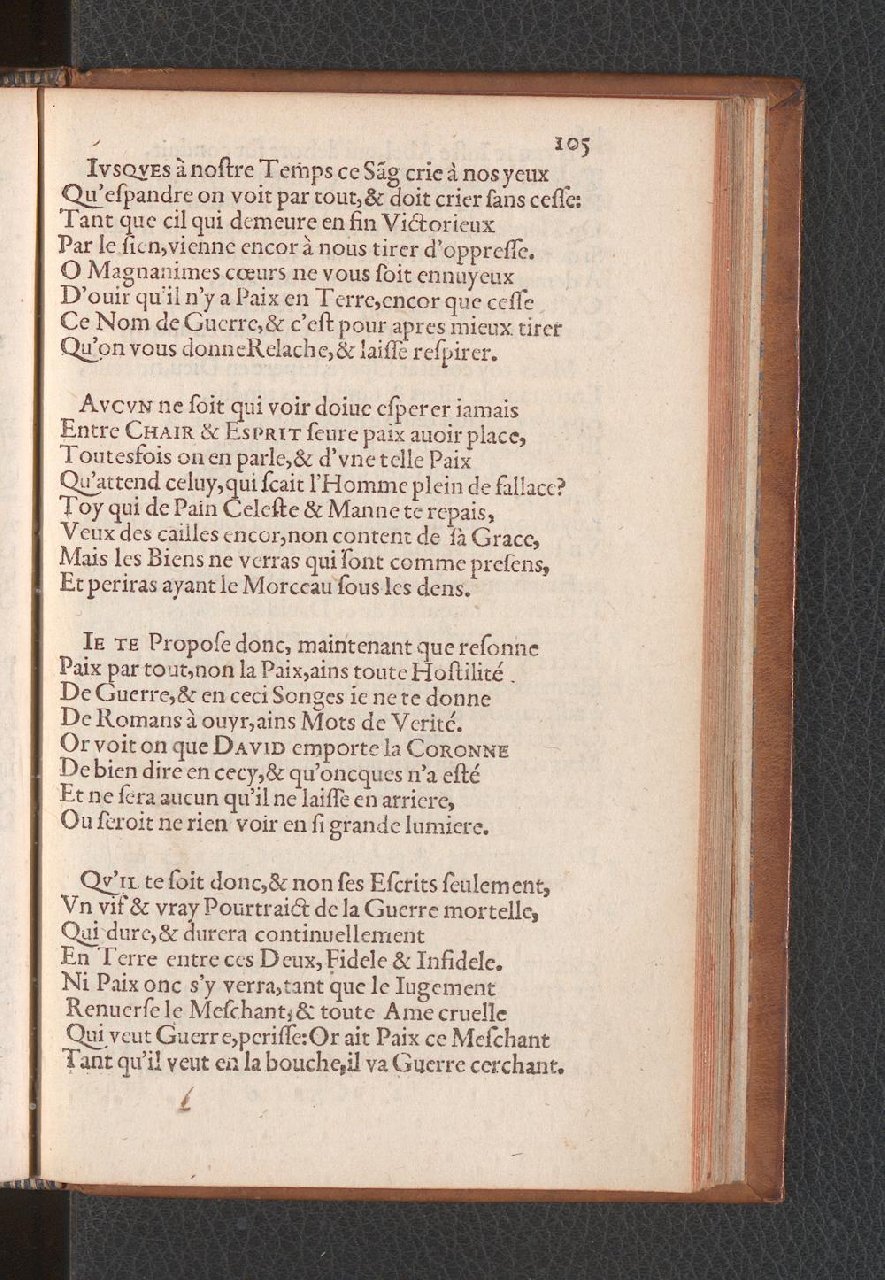 105
IVSQVES à noſtre Temps ce Sãg crie à nos yeux
Qu'eſpandre on voit par tout,& doit crier ſans ceſſe:
Tant que cil qui demeure en fin Victorieux
Par le ſien,vienne encor à nous tirer d'oppreſſe.
O Magnanimes cœurs ne vous ſoit ennuyeux
D'ouir qu'il n'y a Paix en Terre,encor que ceſſe
Ce Nom de Guerre,& c'eſt pour apres mieux tirer
Qu'on vous donneRelache,& laiſſe reſpirer.
AVCVN ne ſoit qui voir doiue eſperer iamais
Entre CHAIR & ESPRIT ſeure paix auoir place,
Toutesfois on en parle,& d'vne telle Paix
Qu'attend celuy,qui ſcait l'Homme plein de fallace?
Toy qui de Pain Celeſte & Manne te repais,
Veux des cailles encor,non content de ſà Grace,
Mais les Biens ne verras qui ſont comme preſens,
Et periras ayant le Morceau ſous les dens.
IE TE Propoſe donc, maintenant que reſonne
Paix par tout,non la Paix,ains toute Hoſtilité
De Guerre,& en ceci Songes ie ne te donne
De Romans à ouyr,ains Mots de Verité.
Or voit on que DAVID emporte la CORONNE
De bien dire en cecy,& qu'oncques n'a eſté
Et ne ſera aucun qu'il ne laiſſe en arriere,
Ou ſeroit ne rien voir en ſi grande lumiere.
QV'IL te ſoit donc,& non ſes Eſcrits ſeulement,
Vn vif & vray Pourtraict de la Guerre mortelle,
Qui dure,& durera continuellement
En Terre entre ces Deux, Fidele & Infidele.
Ni Paix onc s'y verra,tant que le Iugement
Renuerſe le Meſchant,& toute Ame cruelle
Qui veut Guerre,periſſe:Or ait Paix ce Meſchant
Tant qu'il veut en la bouche,il va Guerre cerchant.